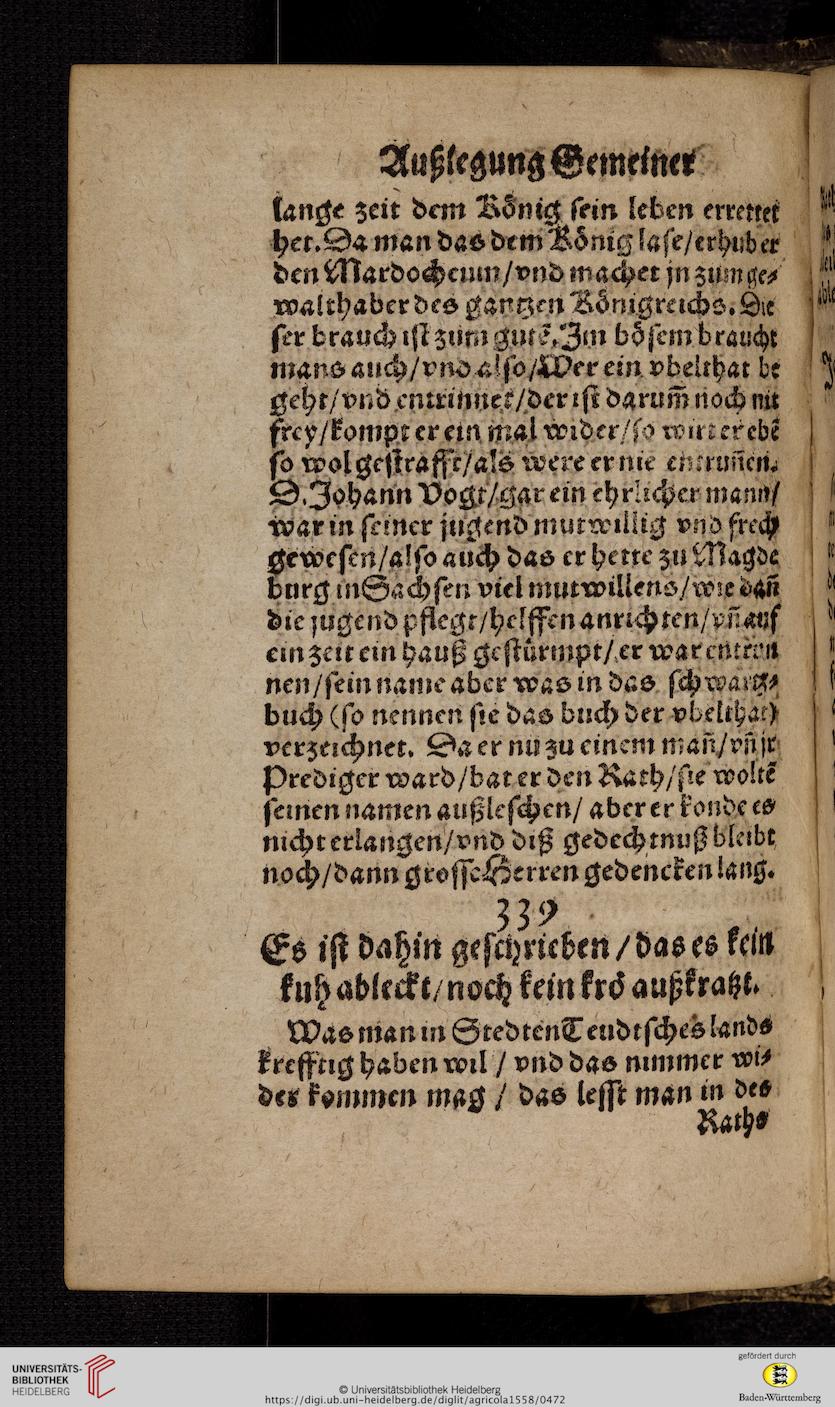 Außlegung Gemeiner
lange zeit dem Koͤnig sein leben errettet
het. Da man das dem Koͤnig lase/erhub er
den Mardocheum/vnd machet jn zum ge⸗
walthaber des gantzen Koͤnigreichs. Die
ser brauch ist zum gutẽ. Im boͤsem braucht
mans auch/vnd also/Wer ein vbelthat be
geht/vnd entrinnet/der ist darum̃ noch nit
frey/kompt er ein mal wider/so wirt er ebẽ
so wol gestrafft/als were er nie entrun̄en.
D. Johann Vogt/gar ein ehrlicher mann/
war in seiner jugend mutwillig vnd frech
gewesen/also auch das er hette zu Magde
burg in Sachsen viel mutwillens/wie dañ
die jugend pflegt/helffen anrichten/vñ auf
ein zeit ein hauß gestuͤrmpt/er war entrun
nen/sein name aber was in das schwartz⸗
buch (so nennen sie das buch der vbelthat)
verzeichnet. Da er nu zu einem mañ/vñ jr
Prediger ward/bat er den Rath/sie woltẽ
seinen namen außleschen/ aber er konde es
nicht erlangen/vnd diß gedechtnuß bleibt
noch/dann grosse Herren gedencken lang.
339
Es ist dahin geschrieben/das es kein
kuh ableckt/noch kein kroͤ außkratzt.
Was man in Stedten Teudtsches lands
krefftig haben wil / vnd das nimmer wi⸗
der kommen mag / das lesst man in des
Raths
UNIVERSITÄTS-
BIBLIOTHEK
HEIDELBERG
© Universitätsbibliothek Heidelberg
https://digi.ub.uni-heidelberg.de/diglit/agricola1558/0472
gefördert durch
Baden-Württemberg